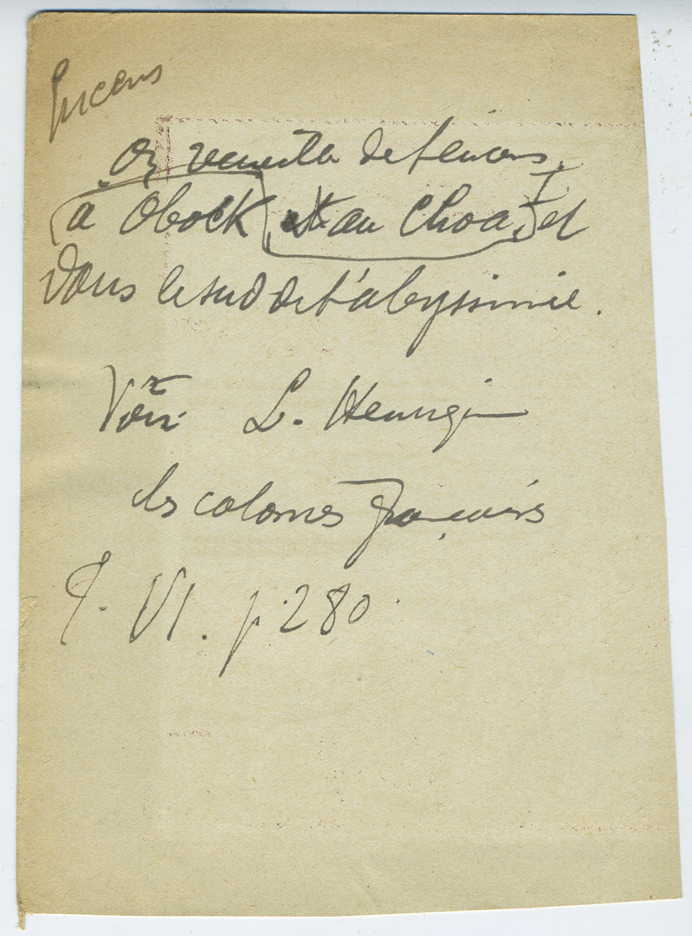 Encens
On recueille de l'encens
à Obock et au Choa, et
Dans le sud de l'abyssinie.
Voir L. Henrique
les colonies françaises
T. VI. p. 280.